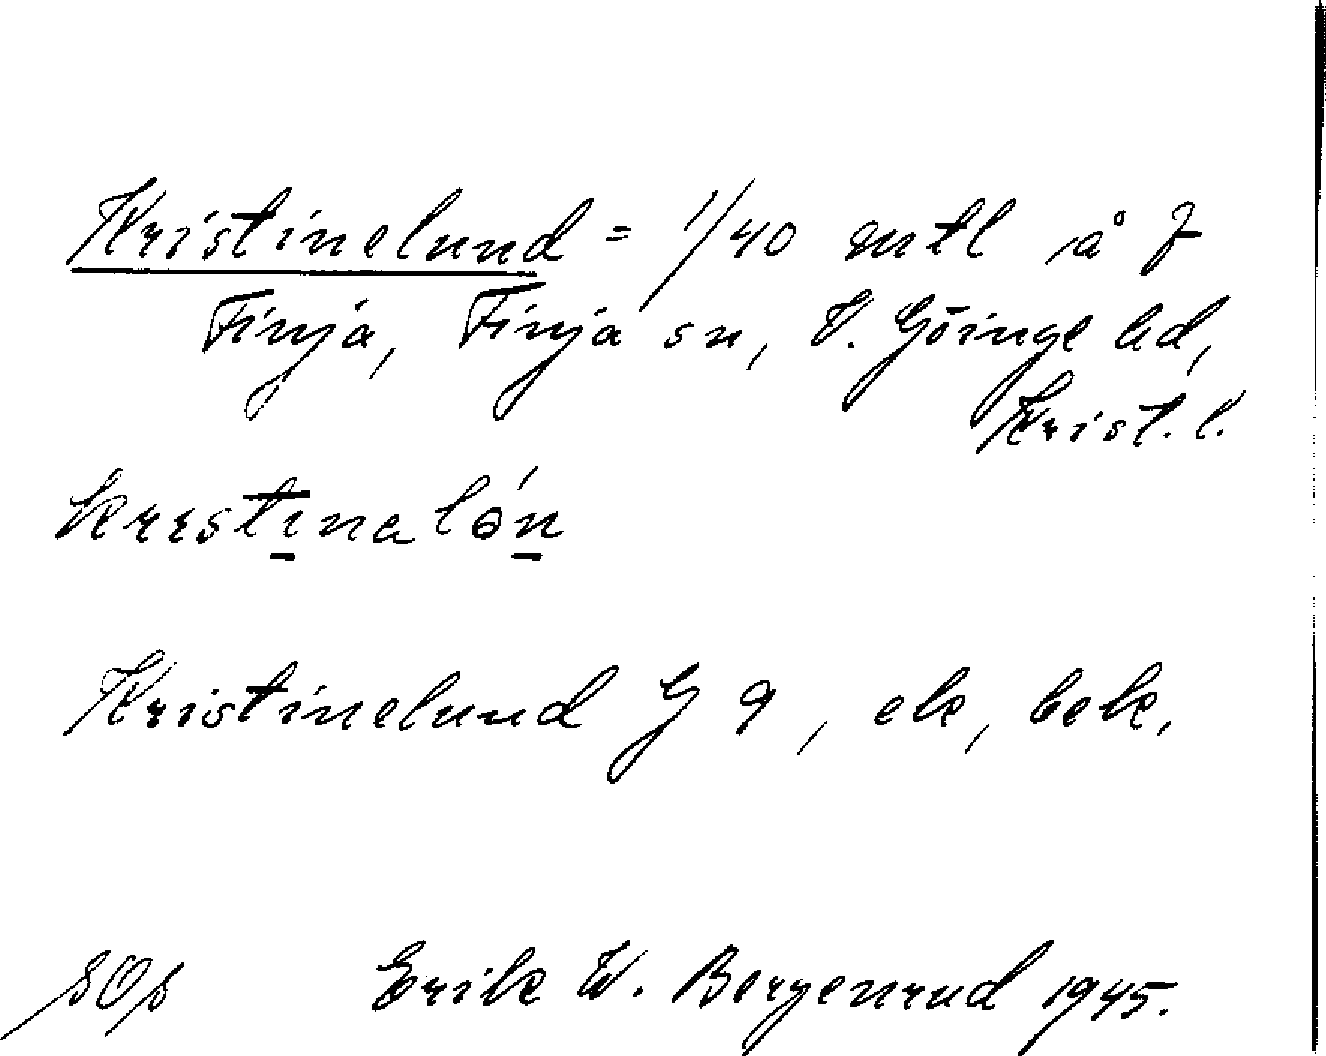 Kristinelund = 1/40 mtl å J
Finja, Finja sn, V. Göinge hd,
Krist. l.
Kristinelund G 9, ek, bek,
SOS Erik W. Bergenrud 1945.